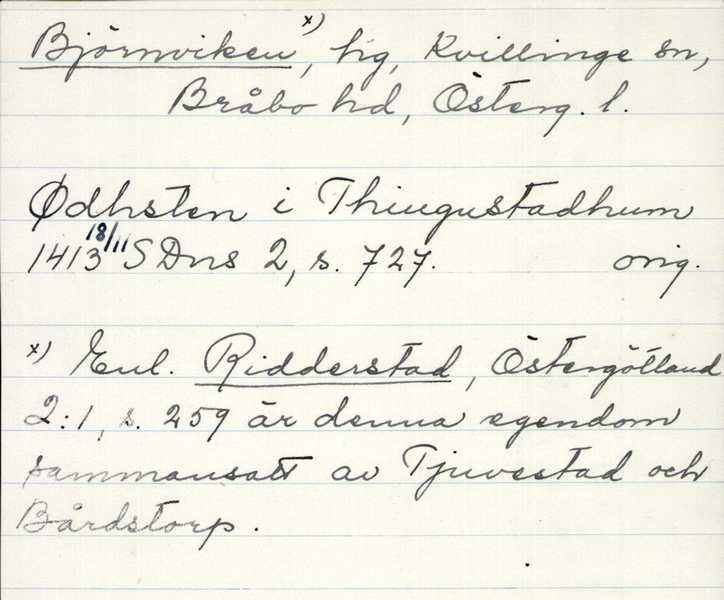 Björnviken x), hg, Kvillinge sn,
Bråbo hd, Österg. l.
Ødhsten i Thiugustadhum
1413 18/11 SDns 2, s. 727. orig.
x) Enl. Ridderstad, Östergötland
2:1, s. 259 är denna egendom
sammansatt av Tjuvestad och
Bårdstorp.